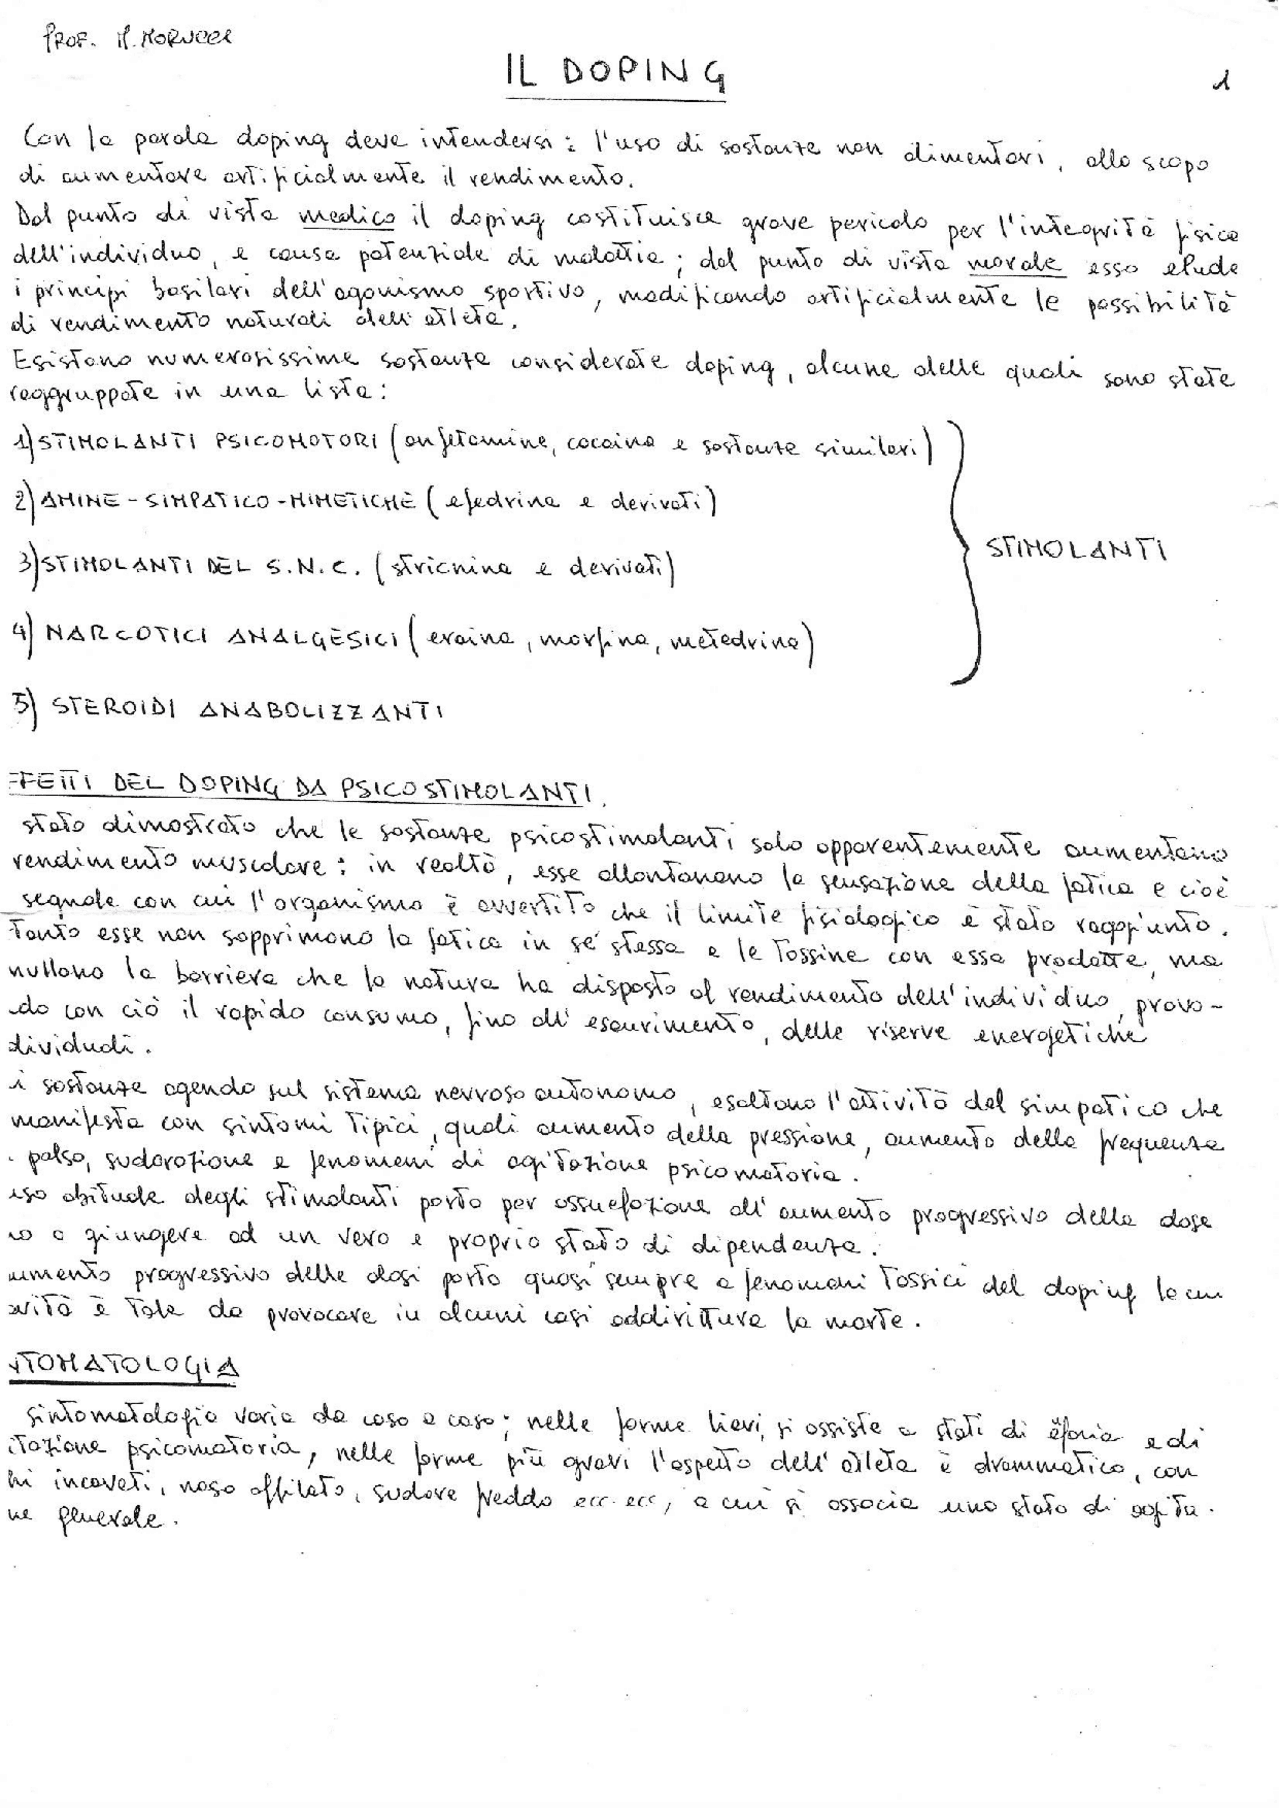 PROF. M. MORUCCI
IL DOPING
1
Con la parola doping deve intendersi: l'uso di sostanze non alimentari, allo scopo
di aumentare artificialmente il rendimento.
Dal punto di vista medico il doping costituisce grave pericolo per l'integrità fisica
dell'individuo, e causa potenziale di malattia; dal punto di vista morale esso elude
i principi basilari dell'agonismo sportivo, modificando artificialmente le possibilità
di rendimento naturali dell'atleta.
Esistono numerosissime sostanze considerate doping, alcune delle quali sono state
raggruppate in una lista:
1) STIMOLANTI PSICOMOTORI (anfetamine, cocaina e sostanze similari)
2) AMINE-SIMPATICO-MIMETICHE (efedrina e derivati)
3) STIMOLANTI DEL S.N.C. (stricnina e derivati)
STIMOLANTI
4) NARCOTICI ANALGESICI (eroina, morfina, metedrina)
5) STEROIDI ANABOLIZZANTI
FFETTI DEL DOPING DA PSICOSTIMOLANTI.
stato dimostrato che le sostanze psicostimolanti solo apparentemente aumentano
rendimento muscolare: in realtà, esse allontanano la sensazione della fatica e cioè
segnale con cui l'organismo è avvertito che il limite fisiologico è stato raggiunto.
tanto esse non sopprimono la fatica in se' stessa e le tossine con essa prodotte, ma
nullano la barriera che la natura ha disposto al rendimento dell'individuo, provo-
do con ciò il rapido consumo, fino all'esaurimento, delle riserve energetiche
dividuali.
i sostanze agendo sul sistema nervoso autonomo, esaltano l'attività del simpatico che
manifesta con sintomi tipici, quali aumento della pressione, aumento della frequenza
. polso, sudorazione e fenomeni di agitazione psicomotoria.
uso abituale degli stimolanti porta per assuefazione all'aumento progressivo della dose
no a giungere ad un vero e proprio stato di dipendenza.
umento progressivo delle dosi porta quasi sempre a fenomeni tossici del doping la cui
avità è tale da provocare in alcuni casi addirittura la morte.
NTOMATOLOGIA
sintomatologia varia da caso a caso; nelle forme lievi, si assiste a stati di euforia e di
itazione psicomotoria, nelle forme più gravi l'aspetto dell'atleta è drammatico, con
hi incavati, naso affilato, sudore freddo ecc. ecc, a cui si associa uno stato di agita-
ne generale.